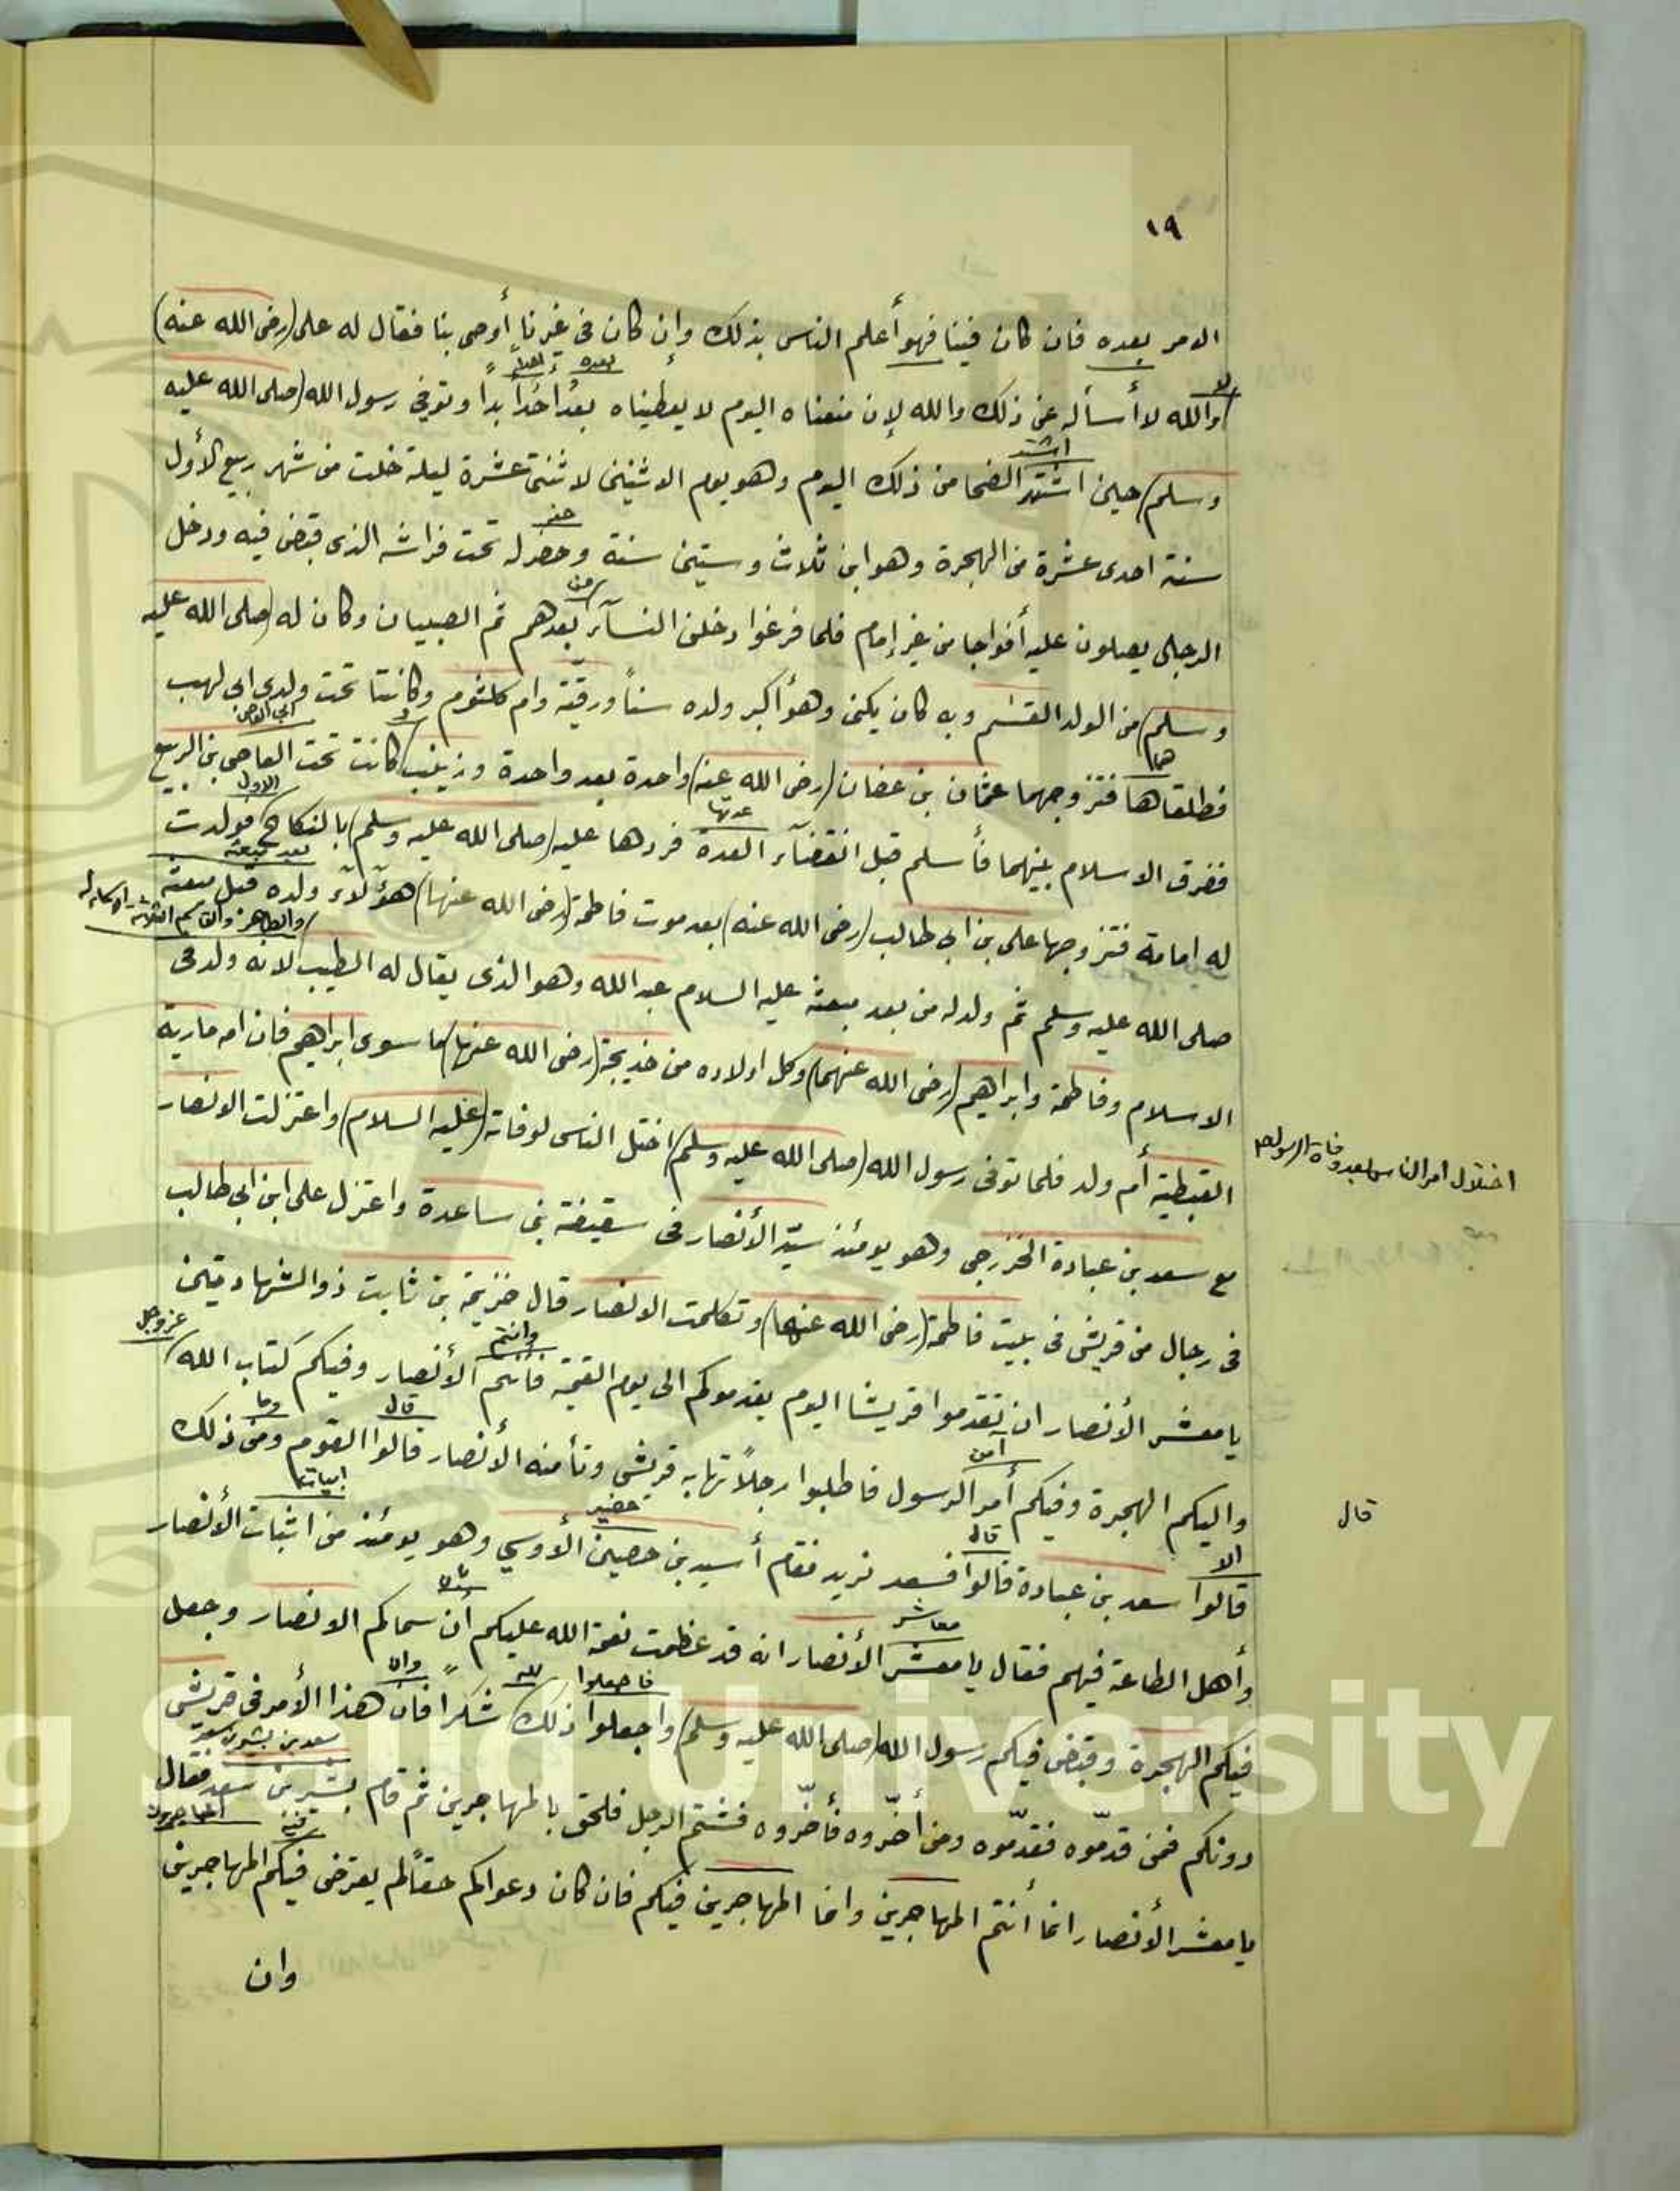 ١٩
الامر بعده فان كان فينا فهو أعلم الناس بذلك وإن كان فى غيرنا أوصى بنا فقال له على (رضى الله عنه)
لا
بعده
والله لا أسأله عن ذلك والله لإن منعناه اليوم لا يعطيناه بعد احدا بدا وتوفي رسول الله (صلى الله عليه
اشتد
وسلم) حين اشتهد الضحا من ذلك اليوم وهو يوم الاثنين لاثنتى عشرة ليلة خلت من شهر ربيع الأول
حفر
سنة احدى عشرة من الهجرة وهو ابن ثلاث وستين سنة وحضر له تحت فراشه الذى قبض فيه ودخل
من
الرجال يصلون عليه أفواجا من غير إمام فلما فرغوا دخلن النسآء بعدهم ثم الصبيان وكان له (صلى الله عليه
وسلم) من الولد القسم وبه كان يكنى وهو أكبر ولده سناً ورقيّة وام كلثوم وكانتا تحت ولدى ابى لهب
هما
و
ابى العاص
فطلقاها فتزوجهما عثمان بن عفان (رضى الله عنه) واحدة بعد واحدة وزينب كانت تحت العاصى بن الربيع
عدتها
الاول
ففرق الاسلام بينهما فأسلم قبل انقضآء العدة فردها عليه (صلى الله عليه وسلم) بالنكاح فولدت
بعد مبعثه
له امامة فتزوجها على بن ابى طالب (رضى الله عنه) بعد موت فاطمة (رضى الله عنها) هؤلآء ولده قبل مبعثه
والطاهر والقاسم
صلى الله عليه وسلم ثم ولد له من بعد مبعثه عليه السلام عبد الله وهو الذى يقال له الطيب لانه ولد فى
الاسلام وفاطمة وابراهيم (رضى الله عنهما) وكل اولاده من خديجة (رضى الله عنها) ما سوى ابراهيم فان امه مارية
القبطية أم ولد فلما توفى رسول الله (صلى الله عليه وسلم) اختل الناس لوفاته (عليه السلام) واعتزلت الانصار
اختلال امر الناس بعد وفاة الرسول صم
مع سعد بن عبادة الخزرجى وهو يومئذ سيّد الأنصار فى سقيفة بنى ساعدة واعتزل على ابن ابى طالب
فى رجال من قريش فى بيت فاطمة (رضى الله عنها) وتكلمت الانصار قال خزيمة بن ثابت ذو الشهادتين
وانتم
عز وجل
يا معشر الأنصار ان تقدموا قريشا اليوم يقدموكم الى يوم القيمة فانتم الأنصار وفيكم كتاب الله
آمن
قال
وما
واليكم الهجرة وفيكم أمر الرسول فاطلبوا رجلاً تهابه قريش وتأمنه الأنصار قالوا القوم ومن ذلك
قال
الا
قال
حضير
ابيات
قالوا سعد بن عبادة قالوا فسعد نريد فقام أسيد بن حصين الأوسي وهو يومئذ من اثبات الأنصار
معاشر
وأهل الطاعة فيهم فقال يا معشر الأنصار انه قد عظمت نعمة الله عليكم أن سماكم الانصار وجعل
فاجعلوا
لله
وان
فيكم الهجرة وقبض فيكم رسول الله (صلى الله عليه وسلم) واجعلوا ذلك شكراً فان هذا الأمر فى قريش
سعد بن بشير بن سعد
دونكم فمن قدّموه فقدّموه ومن أخّروه فأخّروه فشتم الرجل فلحق بالمهاجرين ثم قام بشير بن سعد فقال
المهاجرون
يا معشر الأنصار انما أنتم المهاجرين وانما المهاجرين فيكم فان كان دعواكم حقاً لم يعترض فيكم المهاجرين
وان